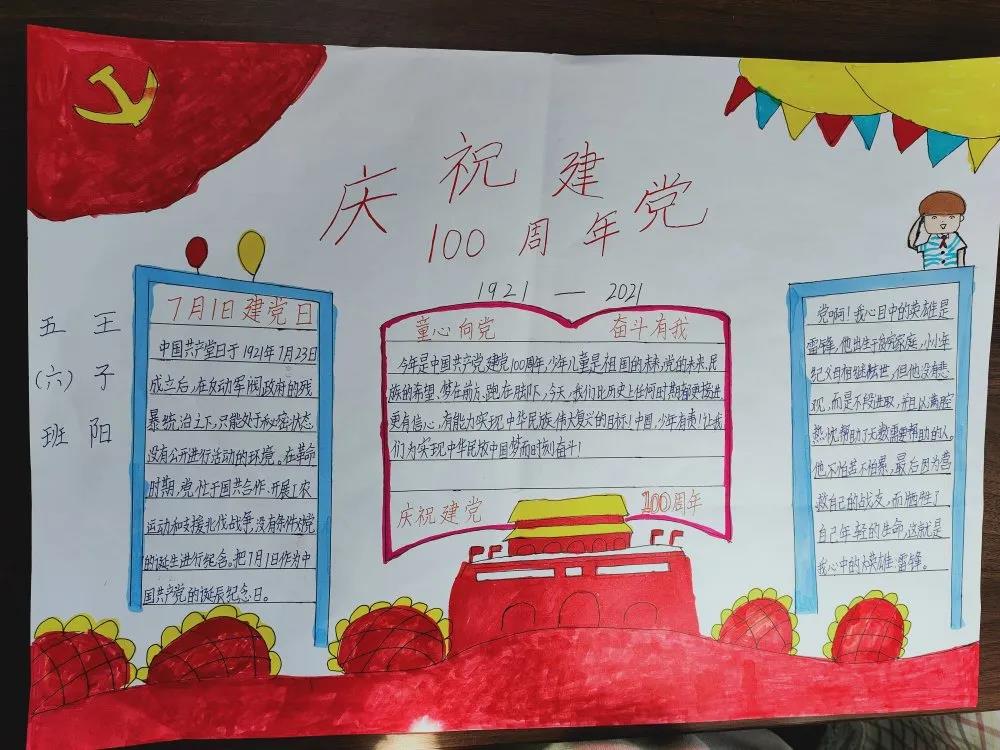 庆祝建党
100周年
1921—2021
五(六)班
王子阳
7月1日建党日
中国共产党日于1921年7月23日
成立后,在反动军阀政府的残
暴统治之下,只能处于秘密状态
没有公开进行活动的环境。在革命
时期,党忙于国共合作、开展工农
运动和支援北伐战争,没有条件对党
的诞生进行纪念。把7月1日作为中
国共产党的诞辰纪念日。
童心向党 奋斗有我
今年是中国共产党建党100周年,少年儿童是祖国的未来,党的未来,民
族的希望。梦在前方,跑在脚下,今天,我们比历史上任何时期都要接近,
更有信心、有能力实现中华民族伟大复兴的目标!中国,少年有责!让我
们为实现中华民族中国梦而时刻奋斗!
庆祝建党 100周年
党啊!我心目中的英雄是
雷锋,他出生于贫穷家庭,小小年
纪父母相继去世,但他没有悲
观,而是不段进取,并且以满腔
热忱帮助了无数需要帮助的人。
他不怕苦不怕累,最后因为营
救自己的战友,而牺牲了
自己年轻的生命,这就是
我心中的大英雄:雷锋。